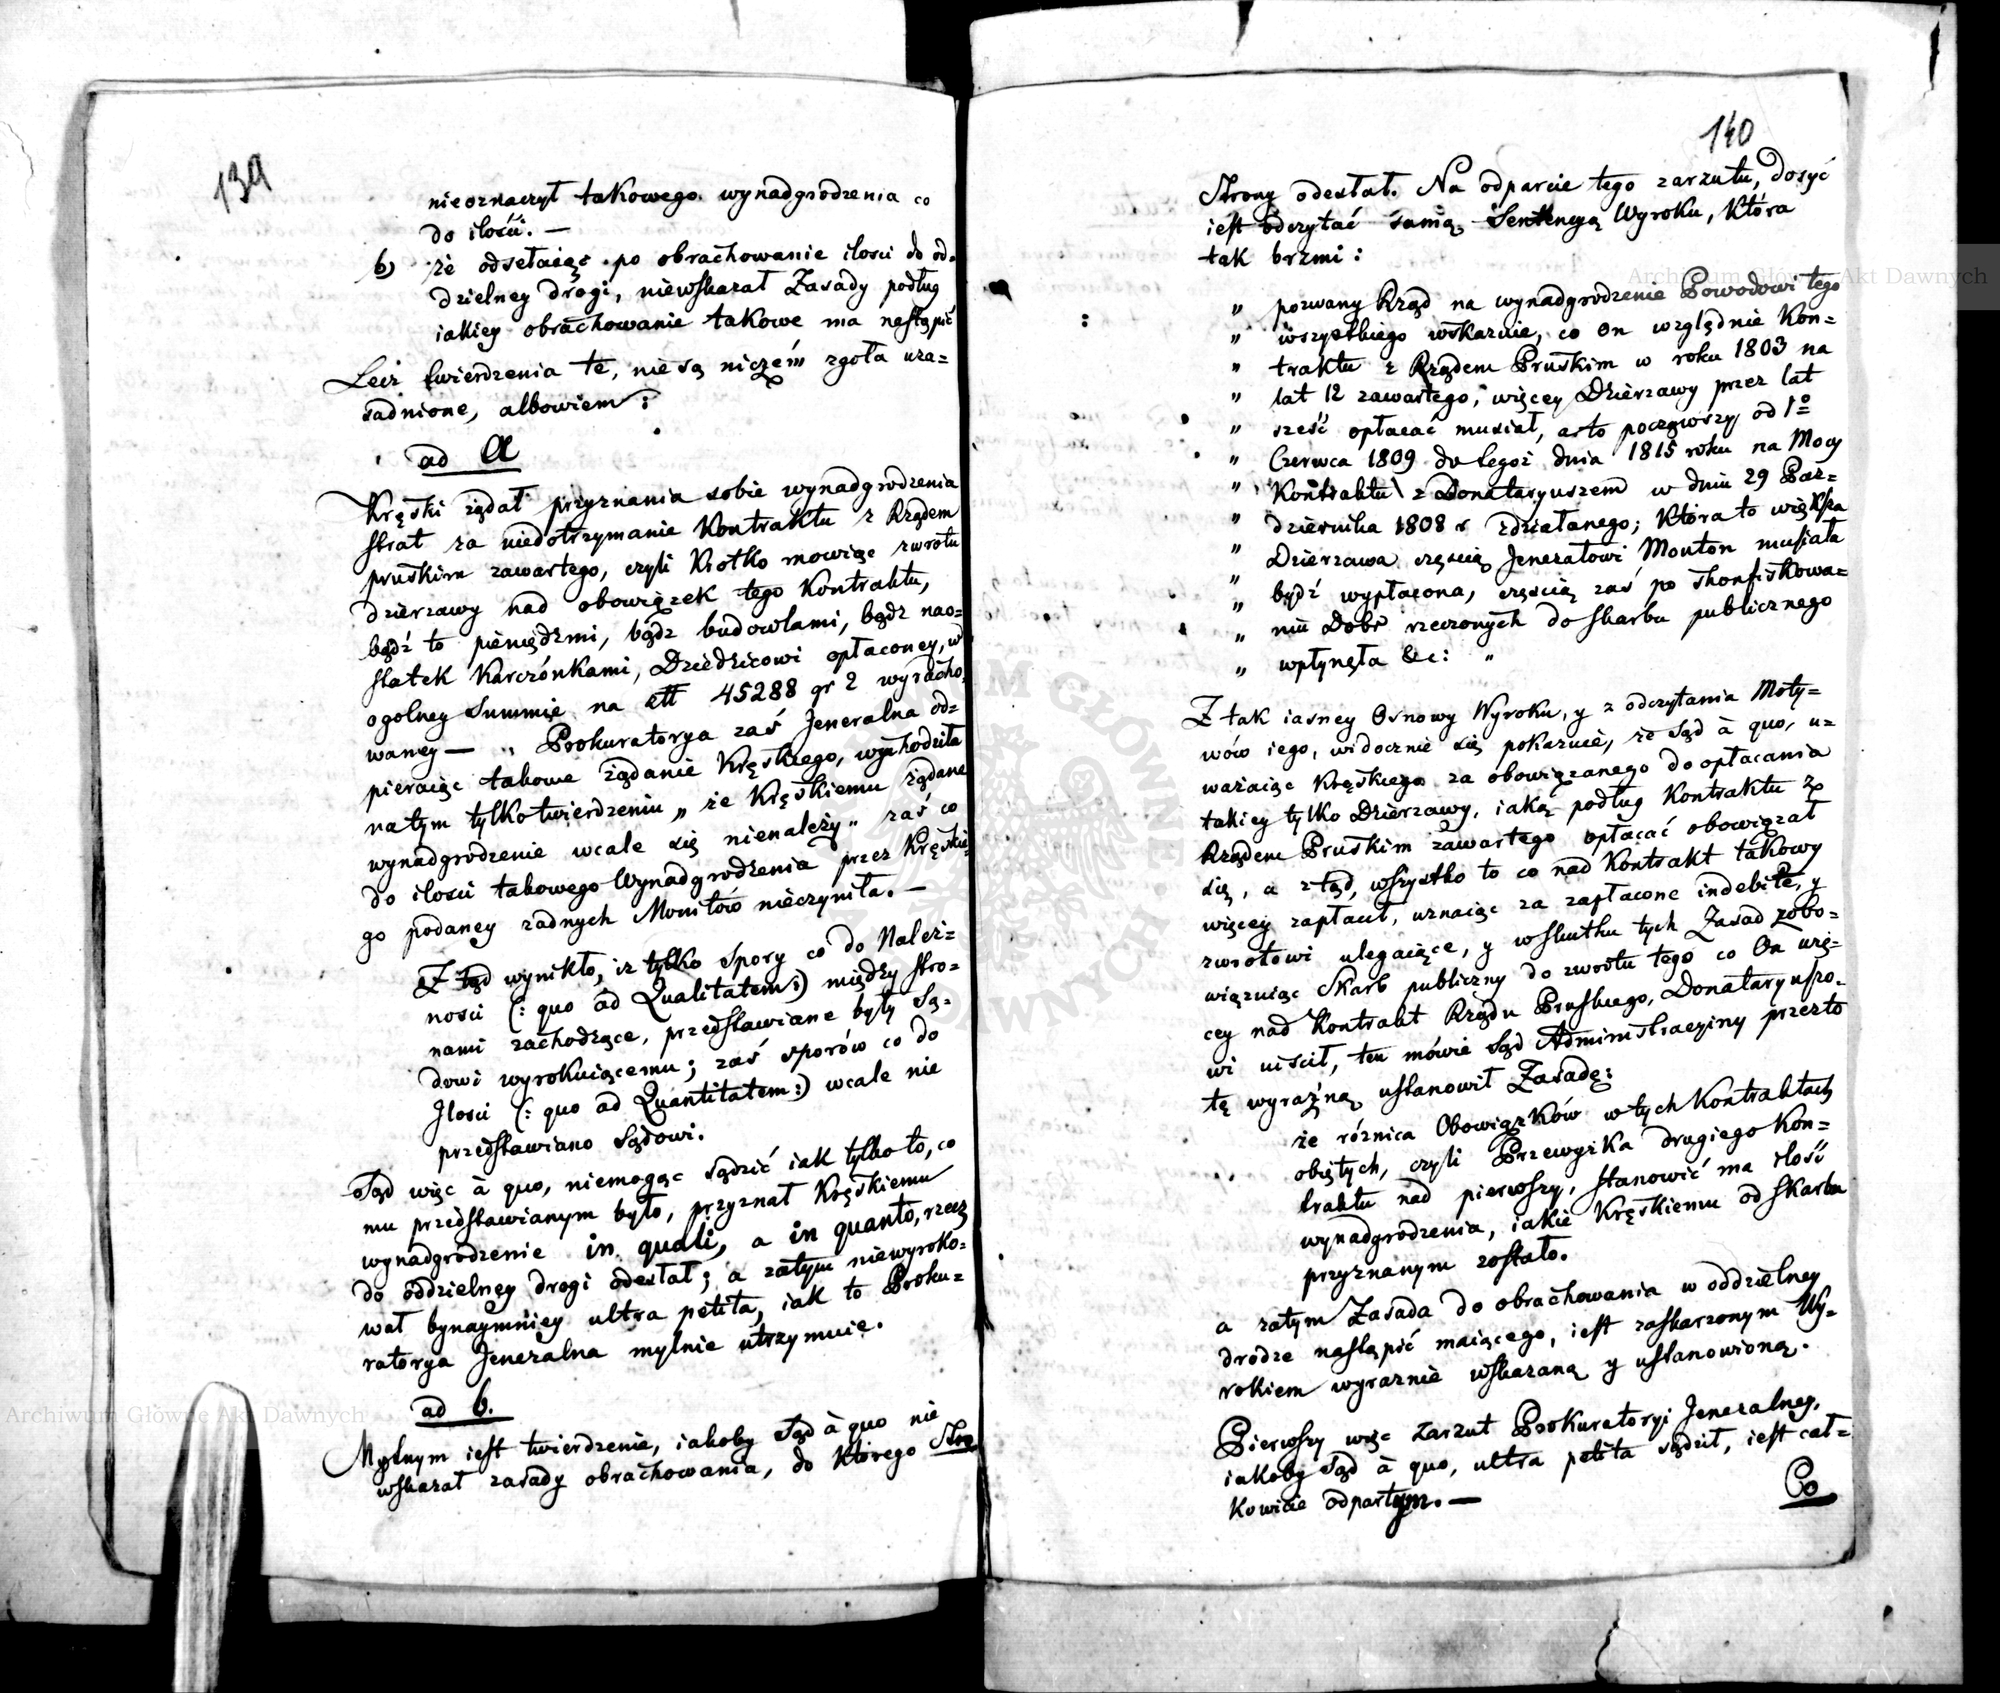 139
nieoznaczył takowego wynadgrodzenia co
do ilości. —
b) że odsełaiąc po obrachowanie ilosci do od-
dzielney drogi, niewskazał Zasady podług
iakiey obrachowanie takowe ma nastąpić
Lecz twierdzenia te, nie są niczém zgoła uza=
sadnione, albowiem:
ad a
Kręski żądał przyznania sobie wynadgrodzenia
strat za niedotrzymanie Kontraktu z Rządem
pruskim zawartego, czyli Krotko mowiąc zwrotu
dzierzawy nad obowiązek tego Kontraktu,
bądź to pieniędzmi, bądz budowlami, bądz nao=
statek Karczónkami, Dziedzicowi opłaconey, w
ogolney Summie na 45288 gr 2 wyracho
waney — „ Prokuratorya zaś Jeneralna od=
pieraiąc takowe żądanie Kręskiego, wychodziła
na tym tylko twierdzeniu „ że Kręskiemu żądane
wynadgrodzenie wcale się nienależy „ zaś co
do ilosci takowego Wynadgrodzenia przez Kręskie=
go podaney zadnych Monitów nieczyniła. —
Z tąd wynikło, iz tylko Spory co do Należ=
ności (: quo ad Qualitatem :) między stro=
nami zachodzące, przedstawiane były Są=
dowi wyrokuiącemu; zaś sporów co do
Jlosci (: quo ad Quantitatem :) wcale nie
przedstawiano Sądowi.
Sąd więc à quo, niemogąc sądzić iak tylko to, co
mu przedstawianym było, przyznał Kręskiemu
wynadgrodzenie in quali, a in quanto, rzecz
do oddzielney drogi odesłał; a zatym niewyroko=
wał bynaymniey ultra petita, iak to Proku=
ratorya Jeneralna mylnie utrzymuie.
ad b.
Mylnym iest twierdzenie, iakoby Sąd à quo nie
wskazał zasady obrachowania, do Którego Stro
140
Strony odesłał. Na odparcie tego zarzutu, dosyć
iest odczytać samą Sentencyą Wyroku, Która
tak brzmi:
„ pozwany Rząd na wynadgrodzenie Powodowi tego
„ wszystkiego wskazuie, co on względnie Kon=
„ traktu z Rządem Pruskim w roku 1803 na
„ lat 12 zawartego, więcey Dzierzawy przez lat
„ sześć opłacać musiał, a to począwszy od 1º
„ Czerwca 1809 do tegoż dnia 1815 roku na Mocy
„ Kontraktu z Donataryuszem w dniu 29 Paz=
„ dziernika 1808 r zdziałanego; Która to większa
„ Dzierzawa częscią Jenerałowi Mouton musiała
„ bydź wypłacona, częscią zaś po skonfiskowa=
„ niu Dobr rzeczonych do skarbu publicznego
„ wpłynęła &c: „
Z tak iasney Osnowy Wyroku, y z odczytania Moty=
wów iego, widocznie się pokazuie, że Sąd à quo, u=
ważaiąc Kręskiego za obowiązanego do opłacania
takiey tylko Dzierzawy, iaką podług Kontraktu z
Rządem Pruskim zawartego opłacać obowiązał
się, a ztąd, wszystko to co nad Kontrakt takowy
więcey zapłacił, uznaiąc za zapłacone indebite, y
zwrotowi ulegaiące, y w skutku tych Zasad zobo=
wiązuiąc Skarb publiczny do zwrotu tego co On wię=
cey nad Kontrakt Rządu Pruskiego, Donataryuszo-
wi uiscił, ten mówie Sąd Administracyiny przezto
tę wyraźną ustanowił Zasadę:
że różnica Obowiązków w tych Kontraktach
obiętych, czyli Przewyżka drugiego Kon=
traktu nad pierwszy, stanowić ma ilość
wynadgrodzenia, iakie Kręskiemu od skarbu
przyznanym zostało.
a zatym Zasada do obrachowania w oddzielney
drodze nastąpić maiącego, iest zaskarzonym Wy=
rokiem wyraznie wskazaną y ustanowioną.
Pierwszy więc zarzut Prokuratoryi Jeneralney,
iakoby Sąd à quo, ultra petita sądził, iest cał=
Kowicie odpartym. —
Co
Archiwum Główne Akt Dawnych
Archiwum Główne Akt Dawnych